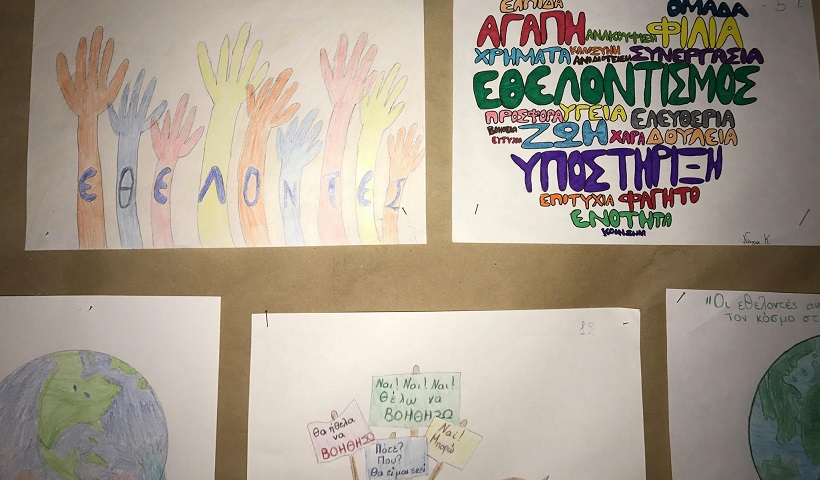 ΕΘΕΛΟΝΤΕΣ
ΕΛΠΙΔΑ ΟΜΑΔΑ
ΑΓΑΠΗ ΑΝΑΚΟΥΦΙΣΗ ΦΙΛΙΑ
ΧΡΗΜΑΤΑ ΚΑΛΟΣΥΝΗ ΣΥΝΕΡΓΑΣΙΑ
ΕΘΕΛΟΝΤΙΣΜΟΣ
ΠΡΟΣΦΟΡΑ ΥΓΕΙΑ ΕΛΕΥΘΕΡΙΑ
ΒΟΗΘΕΙΑ
ΕΥΤΥΧΙΑ ΖΩΗ ΧΑΡΑ ΔΟΥΛΕΙΑ
ΥΠΟΣΤΗΡΙΞΗ
ΕΠΙΤΥΧΙΑ ΦΑΓΗΤΟ
ΕΝΟΤΗΤΑ
12
Ναι! Ναι! Ναι!
Θέλω να
ΒΟΗΘΗΣΩ
Θα ήθελα
να
ΒΟΗΘΗΣΩ
Ναι!
Μπορώ
Πότε?
Που?
Θα είμαι εκεί
"Οι εθελοντές
τον κόσμο